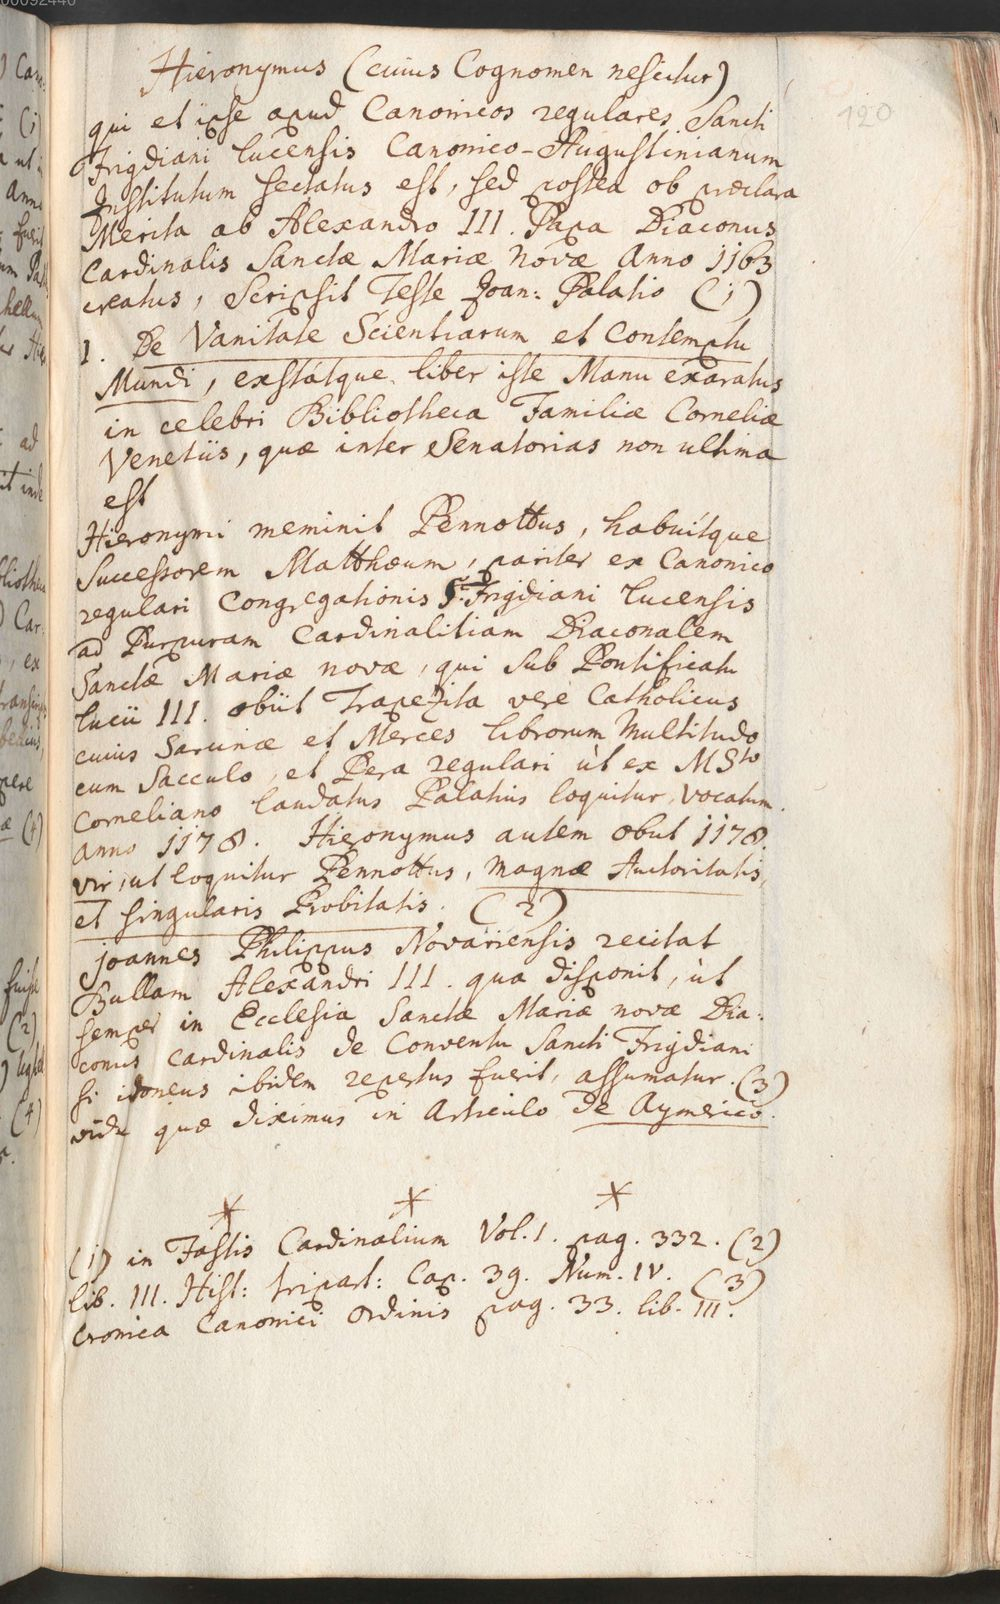 Hieronymus (cuius Cognomen nescitur)
120
qui et ipse apud Canonicos regulares Sancti
Frigdiani lucensis Canonico-Augustinianum
Institutum sectatus est, sed postea ob præclara
Merita ab Alexandro III. Papa Diaconus
Cardinalis Sanctæ Mariæ Novæ Anno 1163
creatus, Scripsit Teste Joan: Palatio (1)
1. De Vanitate Scientiarum et Contemptu
Mundi, exstátque liber iste Manu exaratus
in celebri Bibliotheca Familiæ Corneliæ
Venetiis, quæ inter Senatorias non ultima
est
Hieronymi meminit Pennottus, habuítque
Successorem Matthæum, pariter ex Canonico
regulari Congregationis S. Frigdiani lucensis
ad Purpuram Cardinalitiam Diaconalem
Sanctæ Mariæ novæ, qui sub Pontificatu
lucii III. obiit Trapezita verè Catholicus
cuius Sarcinæ et Merces librorum Multitudo
cum Sacculo, et Pera regulari ùt ex MSto
Corneliano laudatus Palatius loquitur, vocatum
anno 1178. Hieronymus autem obiit 1178.
vir, ut loquitur Pennottus, magnæ Auctoritatis,
et singularis Probitatis. (2)
Joannes Philippus Novariensis recitat
Bullam Alexandri III. qua disponit, ùt
semper in Ecclesia Sanctæ Mariæ novæ Dia:
conus Cardinalis de Conventu Sancti Frigdiani
si idoneus ibidem repertus fuerit, assumatur. (3)
vide quæ diximus in Articulo De Aymerico.
(1) in Fastis Cardinalium Vol. 1. pag. 332. (2)
lib. III. Hist: tripart: Cap. 39. Num. IV. (3)
Cronica Canonici Ordinis pag. 33. lib. III.